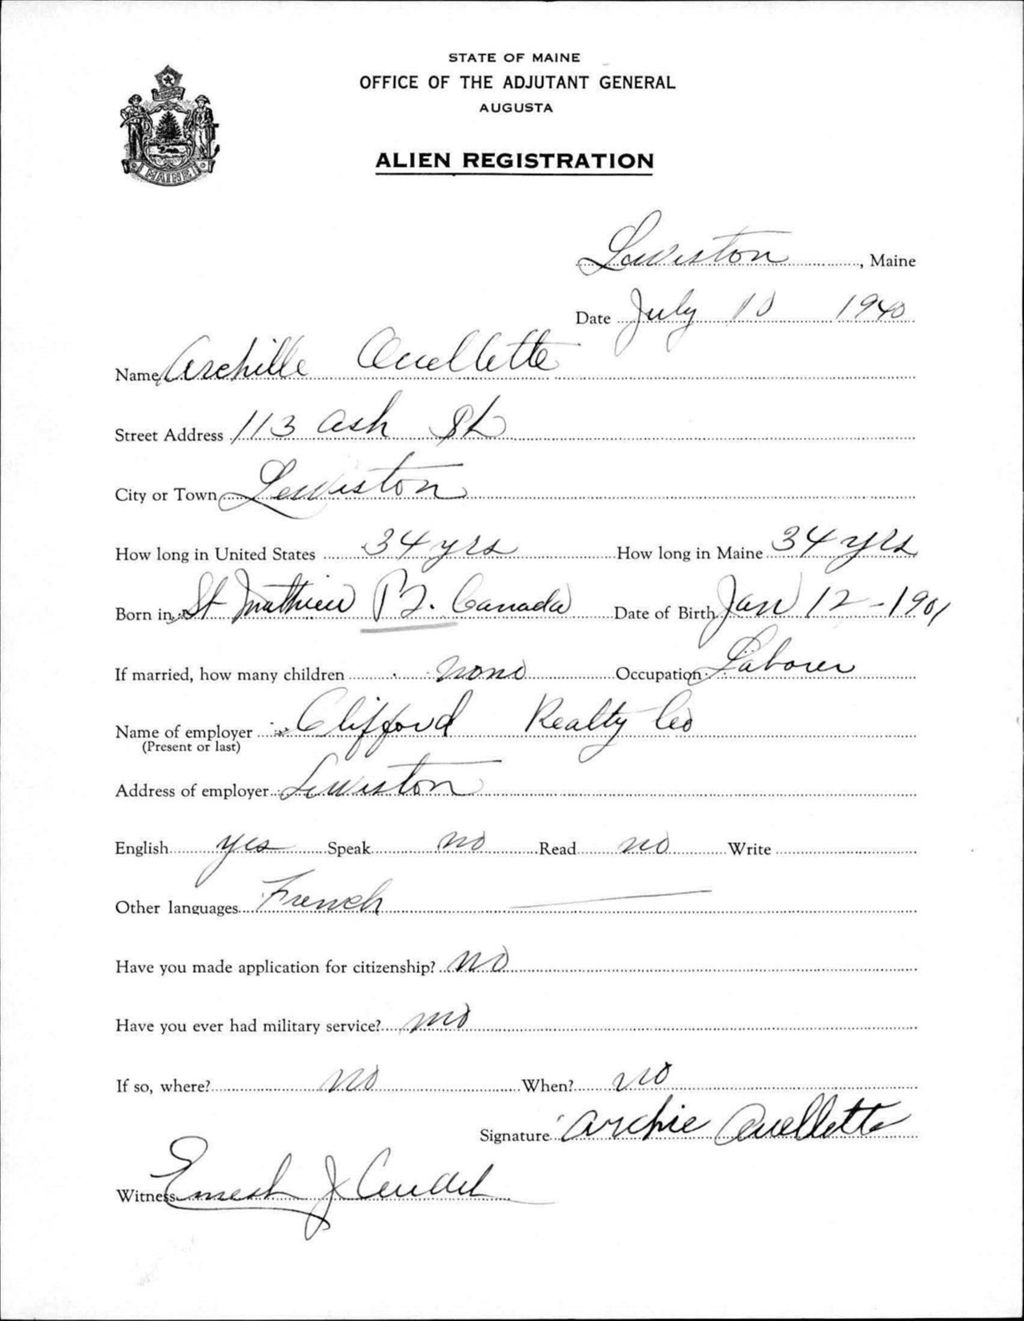 STATE OF MAINE
OFFICE OF THE ADJUTANT GENERAL
AUGUSTA
ALIEN REGISTRATION
MAINE
Lewiston, Maine
Date July 10 1940
Name Archille Ouellette
Street Address 113 Ash St
City or Town Lewiston
How long in United States 34 yrs How long in Maine 34 yrs
Born in St Mathieu P2. Canada Date of Birth Jan 12-1901
If married, how many children none Occupation Laborer
Name of employer Clifford Realty Co
(Present or last)
Address of employer Lewiston
English yes Speak no Read no Write
Other languages French
Have you made application for citizenship? no
Have you ever had military service? no
If so, where? no When? no
Signature Archie Ouellette
Witness Ernest J